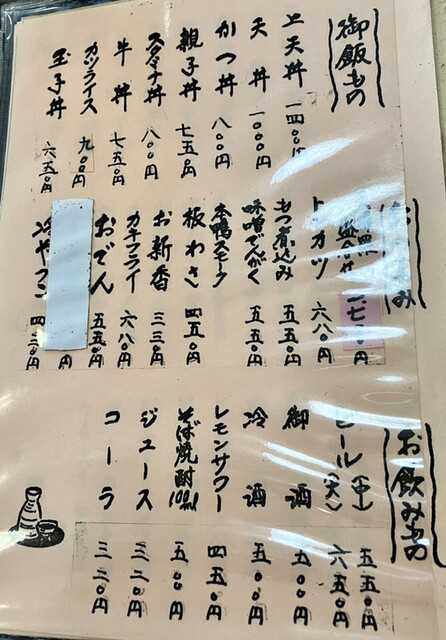 御飯もの
上天丼 一四〇〇円
天丼 一〇〇〇円
かつ丼 八〇〇円
親子丼 七五〇円
スタミナ丼 八〇〇円
牛丼 七五〇円
カツライス 九〇〇円
玉子丼 六五〇円
つまみ
盛合せ 一七〇〇円
トンカツ 六八〇円
もつ煮込み 五五〇円
味噌でんがく 五五〇円
本鴨スモーク
板わさ 四五〇円
お新香 三三〇円
カキフライ 六八〇円
おでん 五五〇円
円
冷やっこ 四三〇円
お飲みもの
ビール(中) 五五〇円
(大) 六五〇円
御酒 五〇〇円
冷酒 五〇〇円
レモンサワー 四五〇円
そば焼酎100ml 五〇〇円
ジュース 三二〇円
コーラ 三二〇円